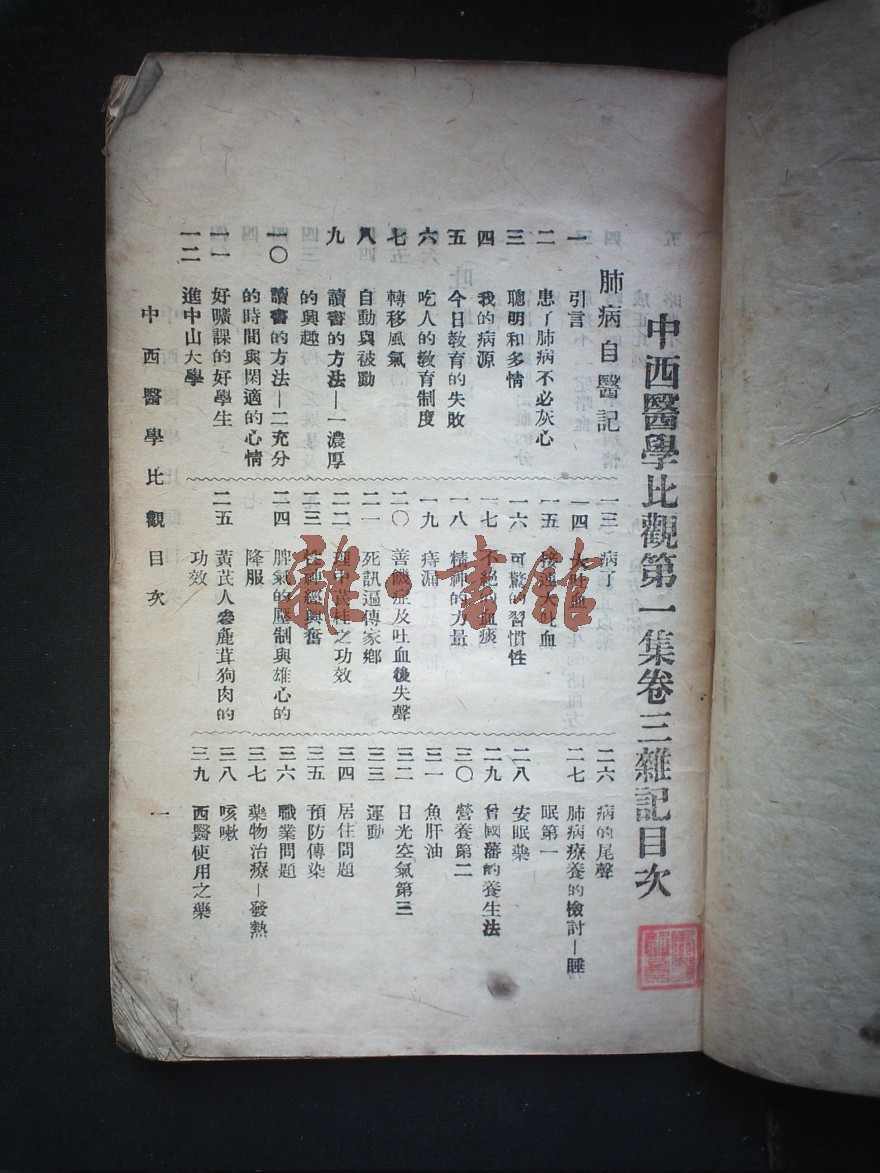 中西醫學比觀第一集卷三雜記目次
肺病自醫記
一 引言
二 患了肺病不必灰心
三 聰明和多情
四 我的病源
五 今日教育的失敗
六 吃人的教育制度
七 轉移風氣
八 自動與被動
九 讀書的方法—一濃厚
的興趣
一〇 讀書的方法—二充分
的時間與閑適的心情
一一 好曠課的好學生
一二 進中山大學
一三 病了
一四 大吐血
一五 接連大吐血
一六 可驚的習慣性
一七 不絕的血痰
一八 精神的力量
一九 痔漏
二〇 善饑症及吐血後失聲
二一 死訊逼傳家鄉
二二 理中芪桂之功效
二三 性神經興奮
二四 脾氣的壓制與雄心的
降服
二五 黃芪人參鹿茸狗肉的
功效
二六 病的尾聲
二七 肺病療養的檢討—睡
眠第一
二八 安眠藥
二九 曾國藩的養生法
三〇 營養第二
三一 魚肝油
三二 日光空氣第三
三三 運動
三四 居住問題
三五 預防傳染
三六 職業問題
三七 藥物治療—發熱
三八 咳嗽
三九 西醫使用之藥
中西醫學比觀目次
一
雜·書館